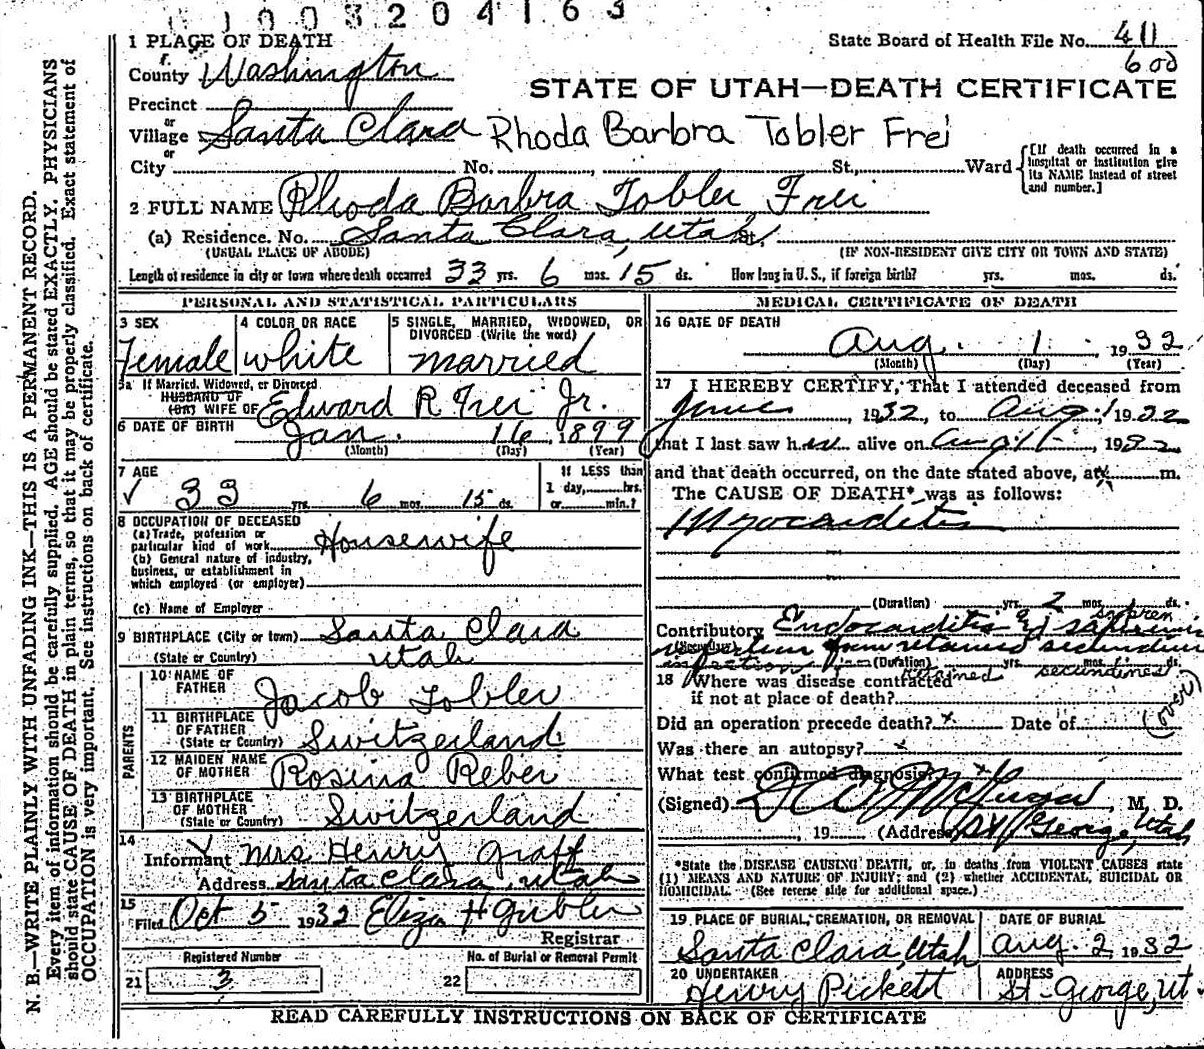 1003204163
1 PLACE OF DEATH
State Board of Health File No. 411
600
County Washington
STATE OF UTAH—DEATH CERTIFICATE
Precinct
or
Village Santa Clara Rhoda Barbra Tobler Frei
or
City No. , St., Ward
[If death occurred in a hospital or institution give its NAME instead of street and number.]
2 FULL NAME Rhoda Barbra Tobler Frei
(a) Residence. No. Santa Clara, Utah St.,
(USUAL PLACE OF ABODE) (IF NON-RESIDENT GIVE CITY OR TOWN AND STATE)
Length of residence in city or town where death occurred 33 yrs. 6 mos. 15 ds. How long in U. S., if foreign birth? yrs. mos. ds.
PERSONAL AND STATISTICAL PARTICULARS
3 SEX
Female
4 COLOR OR RACE
white
5 SINGLE, MARRIED, WIDOWED, OR DIVORCED (Write the word)
married
5a If Married, Widowed, or Divorced
HUSBAND OF
(OR) WIFE OF Edward R Frei Jr.
6 DATE OF BIRTH Jan. 16, 1899
(Month) (Day) (Year)
7 AGE
✓ 33 yrs. 6 mos. 15 ds.
If LESS than
1 day, hrs.
or min.?
8 OCCUPATION OF DECEASED
(a) Trade, profession or
particular kind of work Housewife
(b) General nature of industry,
business, or establishment in
which employed (or employer)
(c) Name of Employer
9 BIRTHPLACE (City or town) Santa Clara
(State or Country) Utah
PARENTS
10 NAME OF
FATHER Jacob Tobler
11 BIRTHPLACE
OF FATHER
(State or Country) Switzerland
12 MAIDEN NAME
OF MOTHER Rosina Reber
13 BIRTHPLACE
OF MOTHER
(State or Country) Switzerland
14
Informant Mrs Henry Graff
Address Santa Clara, Utah
15
Filed Oct 5 1932 Eliza H Gubler
Registrar
Registered Number
21 3
No. of Burial or Removal Permit
22
MEDICAL CERTIFICATE OF DEATH
16 DATE OF DEATH
Aug. 1 1932
(Month) (Day) (Year)
17 I HEREBY CERTIFY, That I attended deceased from
June, 1932, to Aug 1 1932
that I last saw her alive on Aug 1, 1932
and that death occurred, on the date stated above, at m.
The CAUSE OF DEATH* was as follows:
Myocarditis
(Duration) yrs. 2 mos. ds.
Contributory Endocarditis
(Secondary) infection from retained secundines
(Duration) yrs. mos. ds.
infection retained secundines
18 Where was disease contracted
if not at place of death?
(over)
Did an operation precede death? x Date of
Was there an autopsy? x
What test confirmed diagnosis? x
(Signed) McGregor, M. D.
, 19 (Address) St George, Utah
*State the DISEASE CAUSING DEATH, or, in deaths from VIOLENT CAUSES state
(1) MEANS AND NATURE OF INJURY; and (2) whether ACCIDENTAL, SUICIDAL OR
HOMICIDAL. (See reverse side for additional space.)
19 PLACE OF BURIAL, CREMATION, OR REMOVAL
Santa Clara, Utah
DATE OF BURIAL
Aug. 2 1932
20 UNDERTAKER
Henry Pickett
ADDRESS
St-George, Ut.
READ CAREFULLY INSTRUCTIONS ON BACK OF CERTIFICATE
N. B.—WRITE PLAINLY WITH UNFADING INK—THIS IS A PERMANENT RECORD.
Every item of information should be carefully supplied. AGE should be stated EXACTLY. PHYSICIANS
should state CAUSE OF DEATH in plain terms, so that it may be properly classified. Exact statement of
OCCUPATION is very important. See instructions on back of certificate.